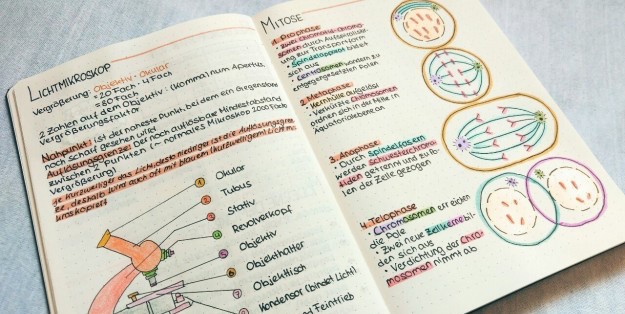 LICHTMIKROSKOP
Vergrößerung: Objektiv · Okular
= 20 Fach · 4 Fach
= 80 Fach
2 Zahlen auf dem Objektiv: (Komma) num Apertur,
Vergrößerungsfaktor
Nahpunkt: ist der naheste Punkt, bei dem ein Gegenstand
noch scharf gesehen wird
Auflösungsgrenze: Der noch auflösbar Mindestabstand
zwischen 2 Punkten (~ normales Mikroskop 2000 Fache
Vergrößerung)
je kurzwelliger das Licht, desto niedriger ist die Auflösungsgren
ze, deshalb wird auch oft mit blauem (kurzwelligem) Licht mi
kroskopiert
1 Okular
2 Tubus
3 Stativ
Revolverkopf
Objektiv
Objekthalter
Objekttisch
Kondensor (bindet Licht)
und Feintrieb
MITOSE
1. Prophase
• zwei Chromatid-Chromo-
somen durch Aufspiralisie-
rung zur Transportform
• Spindelapparat bildet
sich aus
• Centrosomen wandern zu
entgegengesetzten Polen
2. Metaphase
• Kernhülle aufgelöst
• Verkürzte Chromosomen
ordnen sich in der Mitte in
Äquatorialebene an
3. Anaphase
• Durch Spindelfasern
werden Schwesterchroma-
tiden getrennt und zu Po-
len der Zelle gezogen
4. Telophase
• Chromosomen erreichen
die Pole
• Zwei neue Zellkerne bil-
den sich aus
• Verdichtung der Chro-
mosomen nimmt ab